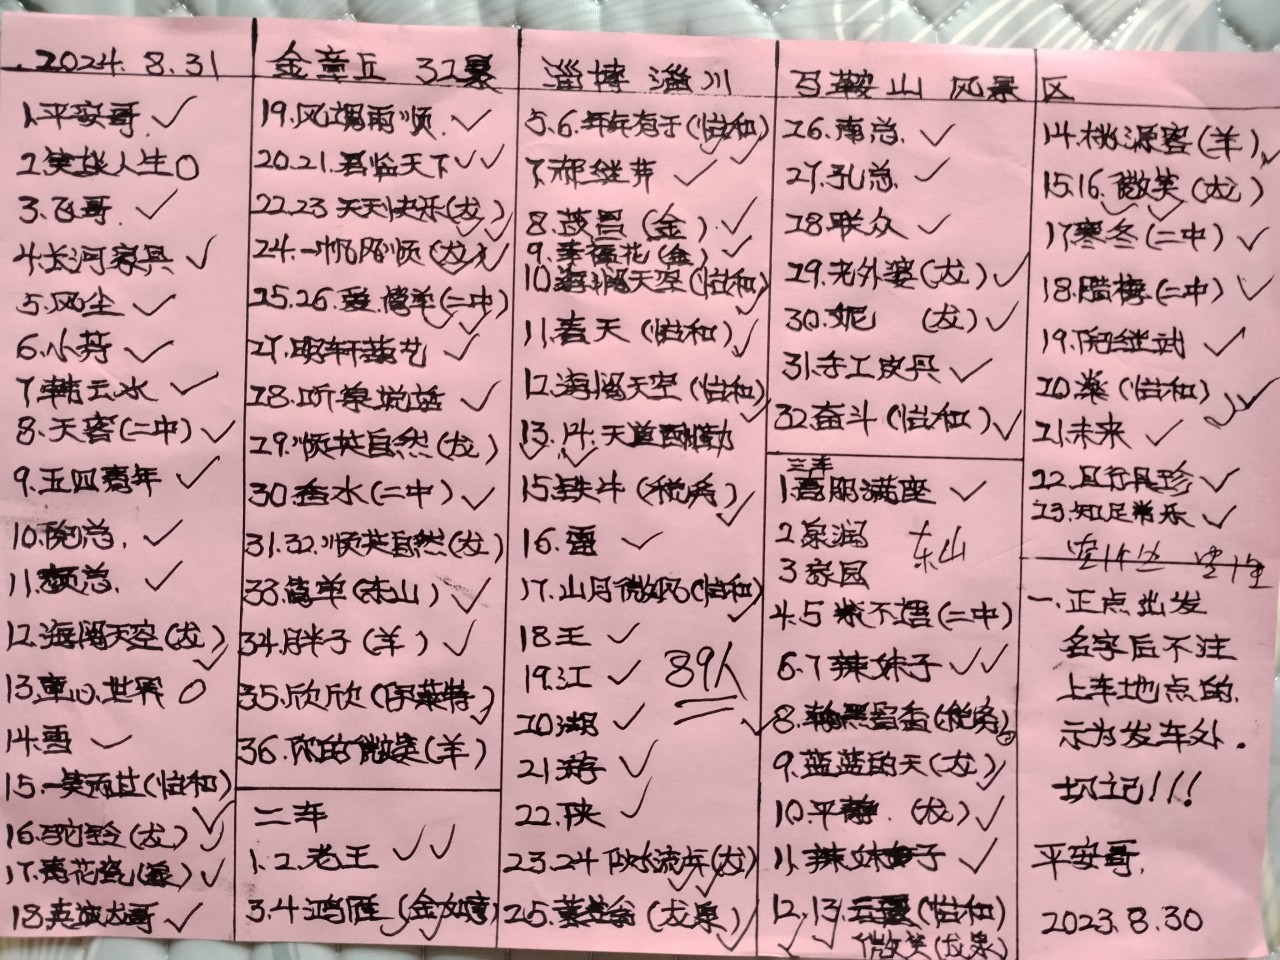 2024.8.31
金章丘 32景
淄博 淄川
马鞍山 风景区
1.平安哥
2.笑战人生
3.飞哥
4.长河家具
5.风尘
6.小芬
7.韩云水
8.天 (二中)
9.五四青年
10.总.
11.总.
12.海阔天空(龙)
13.童心世界
14.雪
15.一笑而过(怡和)
16.驼铃(龙)
17.青花瓷(泉)
18.大哥
19.风调雨顺.
20.21.君临天下
22.23 天天快乐(龙)
24.一帆风顺(龙)
25.26.爱.简单(二中)
27.轩
28.听泉说话
29.顺其自然(龙)
30.香水(二中)
31.32.顺其自然(龙)
33.简单(东山)
34.胖子(羊)
35.欣欣(莱特)
36.你的微笑(羊)
二车
1.2.老王
3.4鸿雁(金)
5.6.年年有于(怡和)
7.继芹
8.茂昌(金)
9.幸福花(金)
10.海阔天空(怡和)
11.春天(怡和)
12.海阔天空(怡和)
13.14.天道酬勤
15.铁牛(税务)
16.雷
17.山月微风(怡和)
18王
19.江
20.湖
21.海
22.陕
23.24 似水流年(龙)
25.(龙泉)
89人
26.南总.
27.孔总.
28.联众
29.老外婆(龙)
30.妮 (龙)
31.手工皮具
32.奋斗(怡和)
三车
1.高朋满座
2泉润 东山
3家园
4.5 不悟(二中)
6.7辣妹子
8.翰墨留香(税务)
9.蓝蓝的天(龙)
10.平静.(龙)
11.辣妹子
12.13.云(怡和)
微笑(龙泉)
14.桃源客(羊)
15.16.微笑(龙)
17寒冬(二中)
18.腊梅(二中)
19.继武
20.(怡和)
21.未来
22.且行且珍
23.知足常乐
一.正点出发
名字后不注
上车地点的.
示为发车处.
切记!!!
平安哥.
2023.8.30